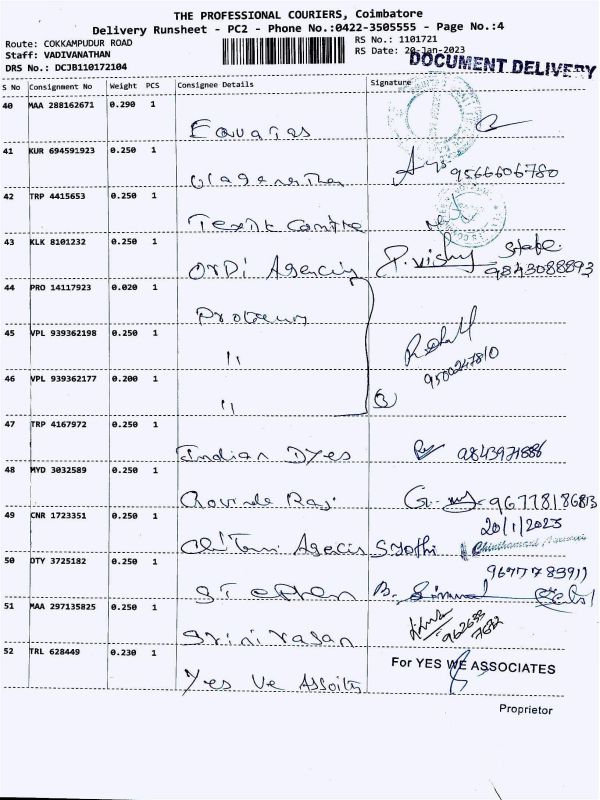 THE PROFESSIONAL COURIERS, Coimbatore
Delivery Runsheet - PC2 - Phone No.:0422-3505555 - Page No.:4
Route: COKKAMPUDUR ROAD
Staff: VADIVANATHAN
DRS No.: DCJB110172104
RS No.: 1101721
RS Date: 20-Jan-2023
DOCUMENT DELIVERY
S No Consignment No Weight PCS Consignee Details Signature
40 MAA 288162671 0.290 1
Equatas
41 KUR 694591923 0.250 1
9566606780
42 TRP 4415653 0.250 1
Textt Centre
43 KLK 8101232 0.250 1
ORDI Agenciy P. vishy State
9843088893
44 PRO 14117923 0.020 1
Proteun
45 VPL 939362198 0.250 1
"
9500247810
46 VPL 939362177 0.200 1
"
47 TRP 4167972 0.250 1
Indian Dyes 9843971886
48 MYD 3032589 0.250 1
Govinda Raj
49 CNR 1723351 0.250 1
20/1/2023
Agecis Syothi
50 DTY 3725182 0.250 1
9677783911
Stephen B.
51 MAA 297135825 0.250 1
Srinivasan
52 TRL 628449 0.230 1
Yes We Assoits
For YES WE ASSOCIATES
Proprietor